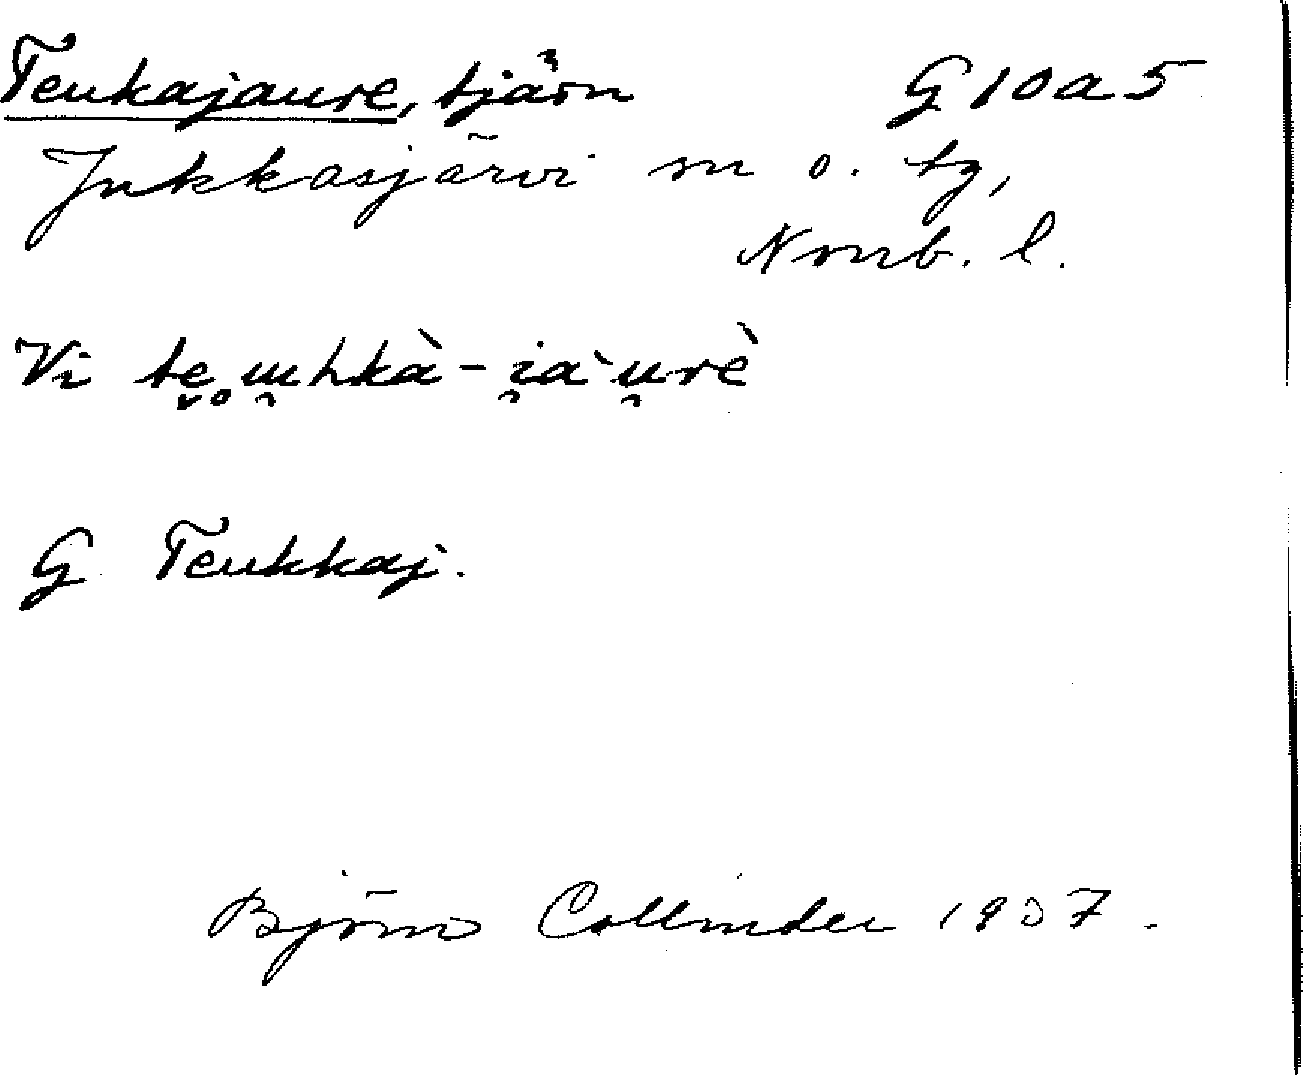 Teukajaure, tjärn G 10 a 5
Jukkasjärvi sn o. tg,
Norrb. l.
Vi te̬ɯ̯hkà-i̯a`u̯rè
G Teukkaj.
Björn Collinder 1937.